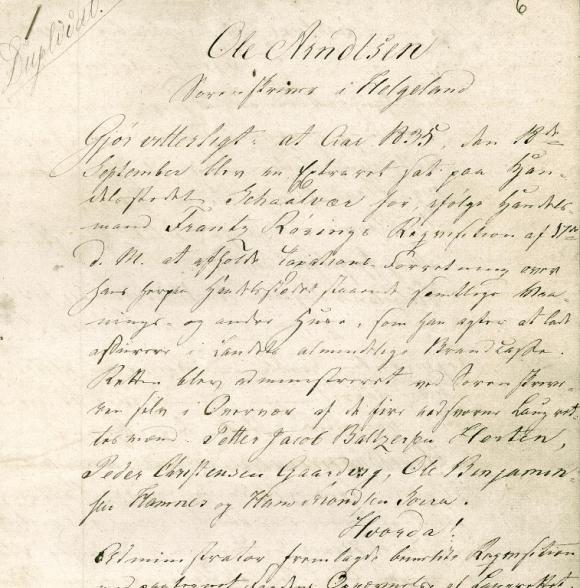 6
Duplicat.
Ole Arndtsen
Sorenskriver i Helgeland
Gjør vitterligt: at Aar 1835, den 18de
September blev en Extraret sat paa Han-
delsstedet Schaalvær for, ifølge Handels-
mand Frantz Røsings Reqvisition af 17de
d. M. at afholde Taxations-Forretning over
hans herpaa Handelsstedet staaende samtlige Vaa-
nings- og andre Huse, som han agter at lade
assurere i Landets almindelige Brandcasse.
Retten blev administreret ved Sorenskrive-
ren selv i Overvær af de fire edsvorne Laugret-
tesmænd. Petter Jacob Baltzersen Horten,
Peder Christensen Gaards, Ole Benjamin-
sen Hamnes og Hans
Hvorda!
Administrator fremlagde bemeldte Reqvisition